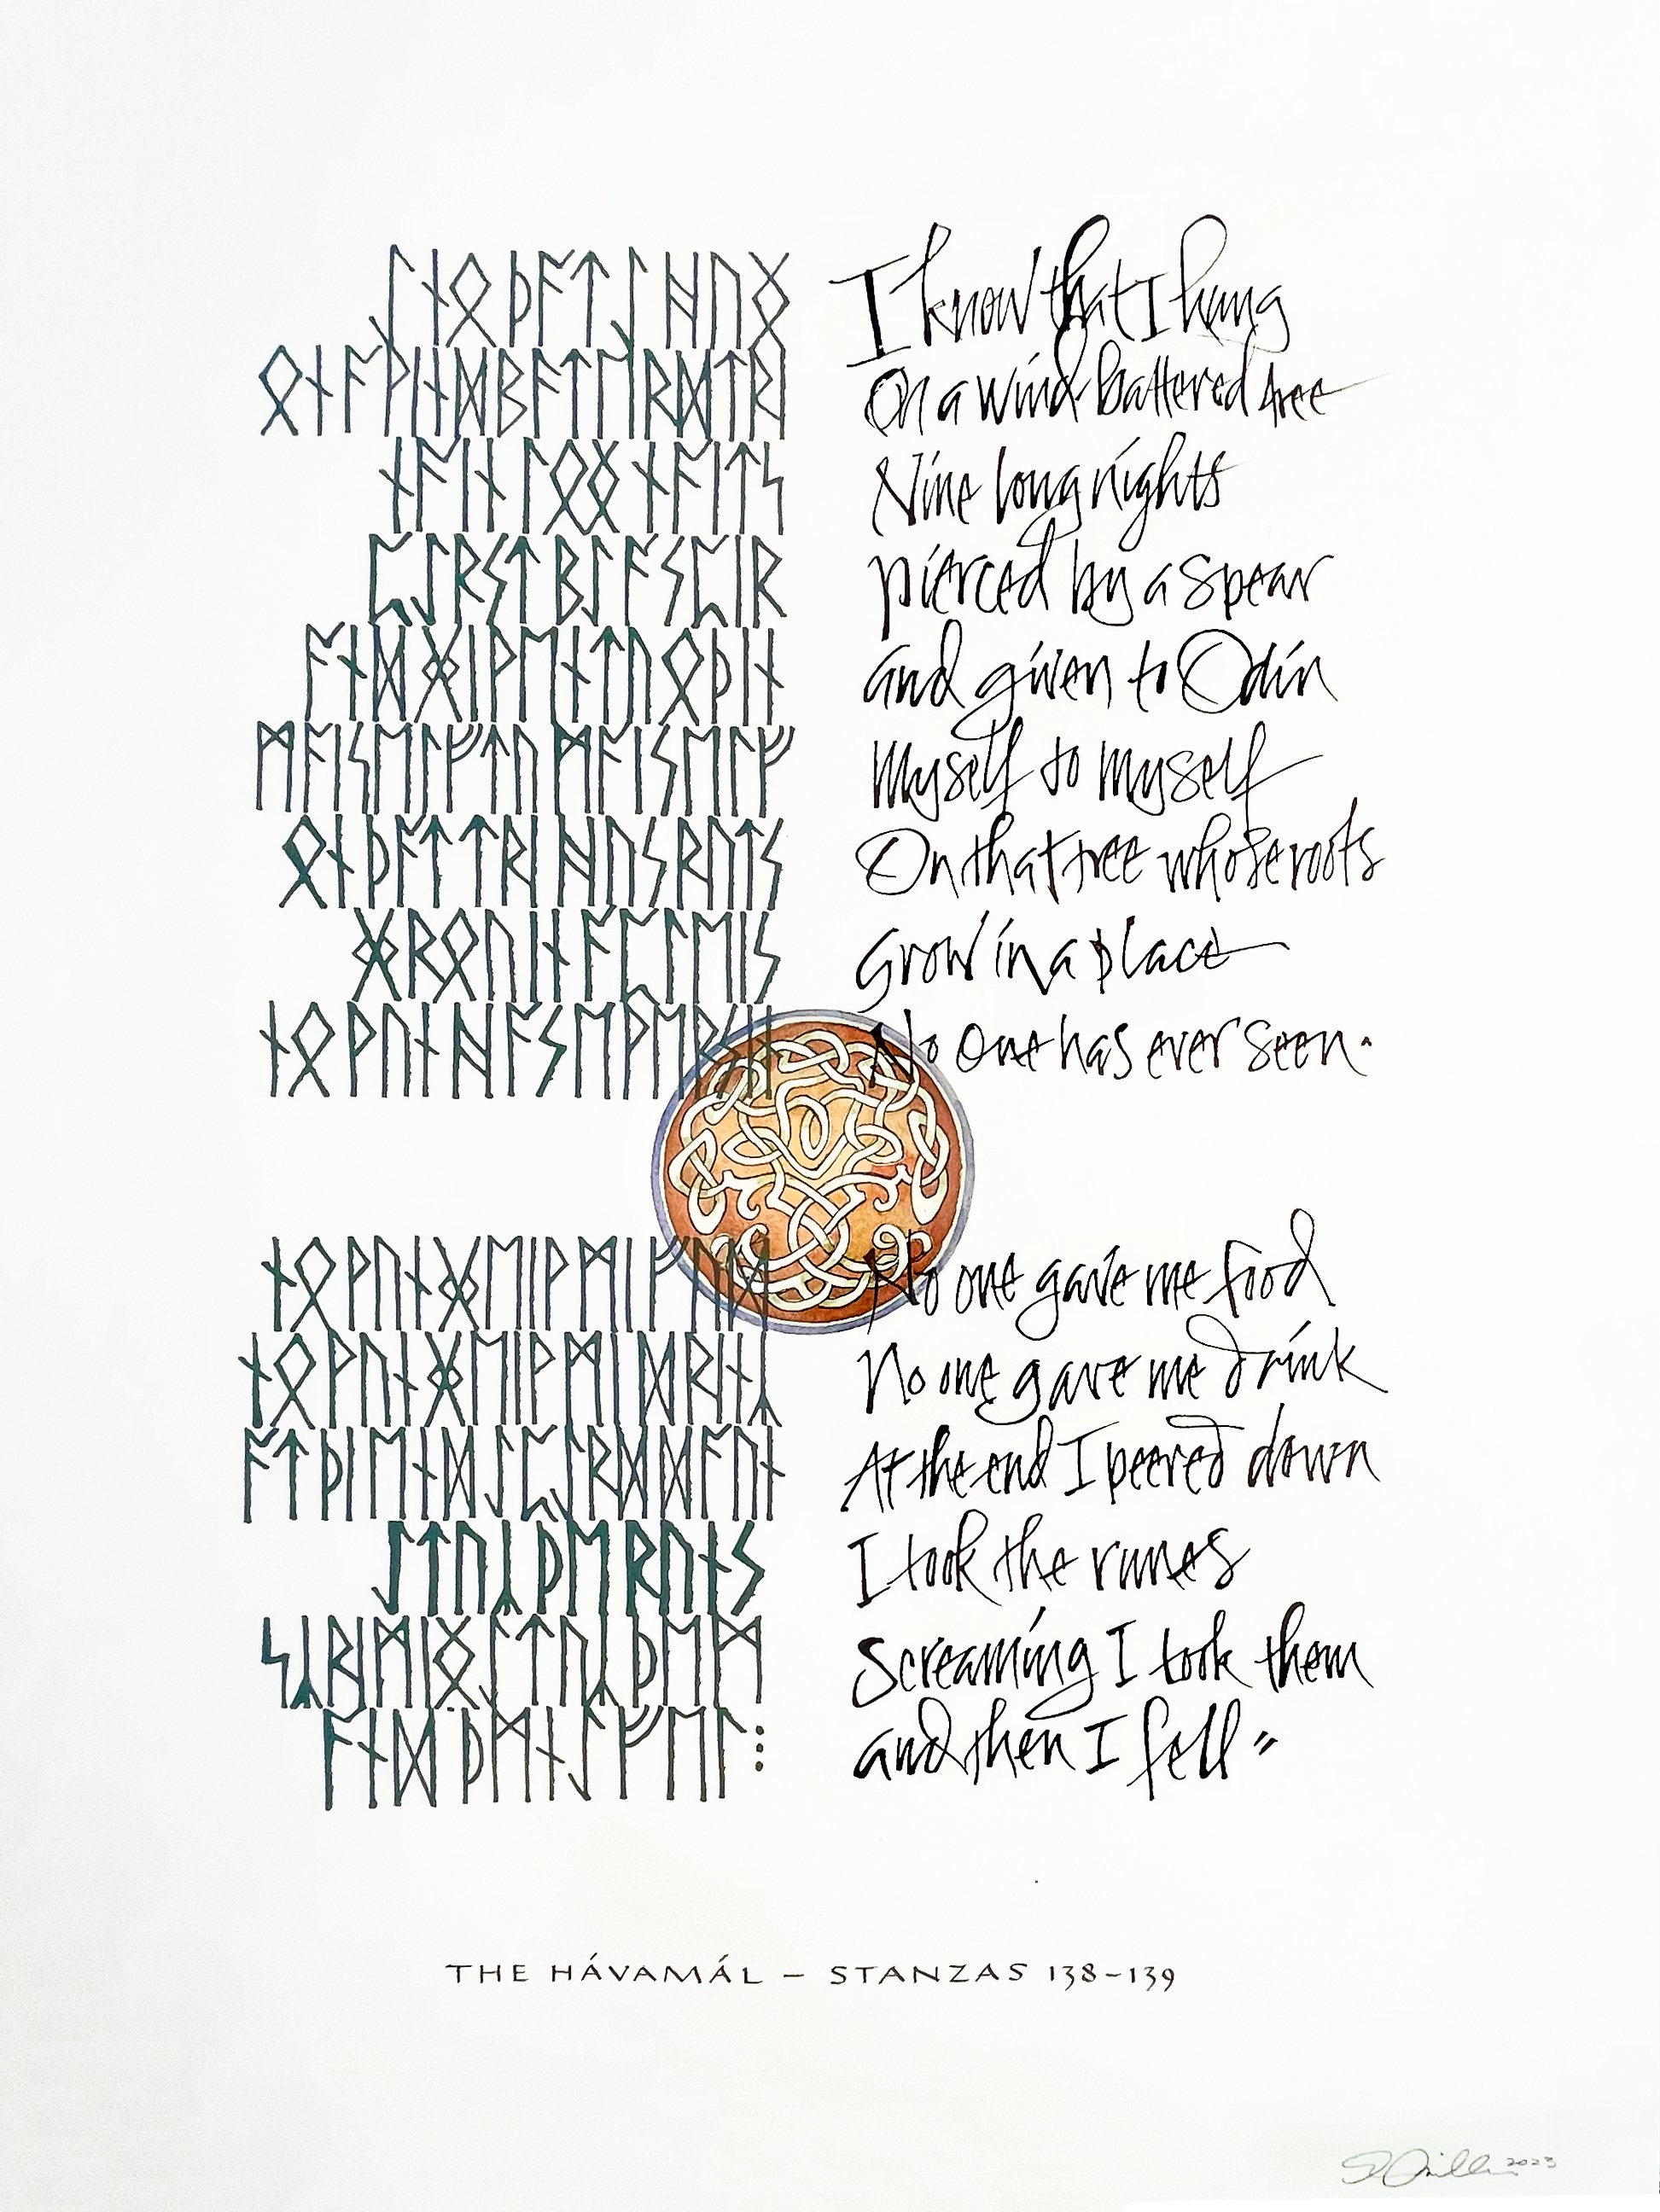 ᛇᚾᛟ ᚦᚨᛏ ᛇ ᚺᚢᛝ
ᛟᚾ ᚨ ᚹᛁᚾᛞ ᛒᚨᛏᛖᚱᛞ ᛏᚱᛁ
ᚾᚨᛁᚾ ᛚᛟᛝ ᚾᚨᛁᛏᛊ
ᛈᛇᚱᛊᛏ ᛒᛇ ᚨ ᛊᛈᛁᚱ
ᚨᚾᛞ ᚷᛁᚹᛖᚾ ᛏᚢ ᛟᚦᛁᚾ
ᛗᚨᛁᛊᛖᛚᚠ ᛏᚢ ᛗᚨᛁᛊᛖᛚᚠ
ᛟᚾ ᚦᚨᛏ ᛏᚱᛁ ᚺᚢᛊ ᚱᚢᛏᛊ
ᚷᚱᛟᚢ ᛁᚾ ᚨ ᛈᛚᛖᛁᛊ
ᚾᛟ ᚹᚢᚾ ᚺᚨᛊ ᛖᚹᛖᚱ ᛊᛁᚾ
ᚾᛟ ᚹᚢᚾ ᚷᛖᛁᚹ ᛗᛁ ᚠᚢᛞ
ᚾᛟ ᚹᚢᚾ ᚷᛖᛁᚹ ᛗᛁ ᛞᚱᛁᚾᛣ
ᚨᛏ ᚦᛁ ᛖᚾᛞ ᛇ ᛈᛇᚱᛞ ᛞᚨᚢᚾ
ᛇ ᛏᚢᛣ ᚦᛖ ᚱᚢᚾᛊ
ᛊᛣᚱᛁᛗᛁᛝ ᛇ ᛏᚢᛣ ᚦᛖᛗ
ᚨᚾᛞ ᚦᛗᚾ ᛇ ᚠᛖᛚ⁝
I know that I hung
On a wind-battered tree
Nine long nights
pierced by a spear
and given to Odin
Myself to Myself
On that tree whose roots
Grow in a place
No one has ever seen.
No one gave me food
No one gave me drink
At the end I peered down
I took the runes
Screaming I took them
and then I fell
THE HÁVAMÁL – STANZAS 138-139
2023